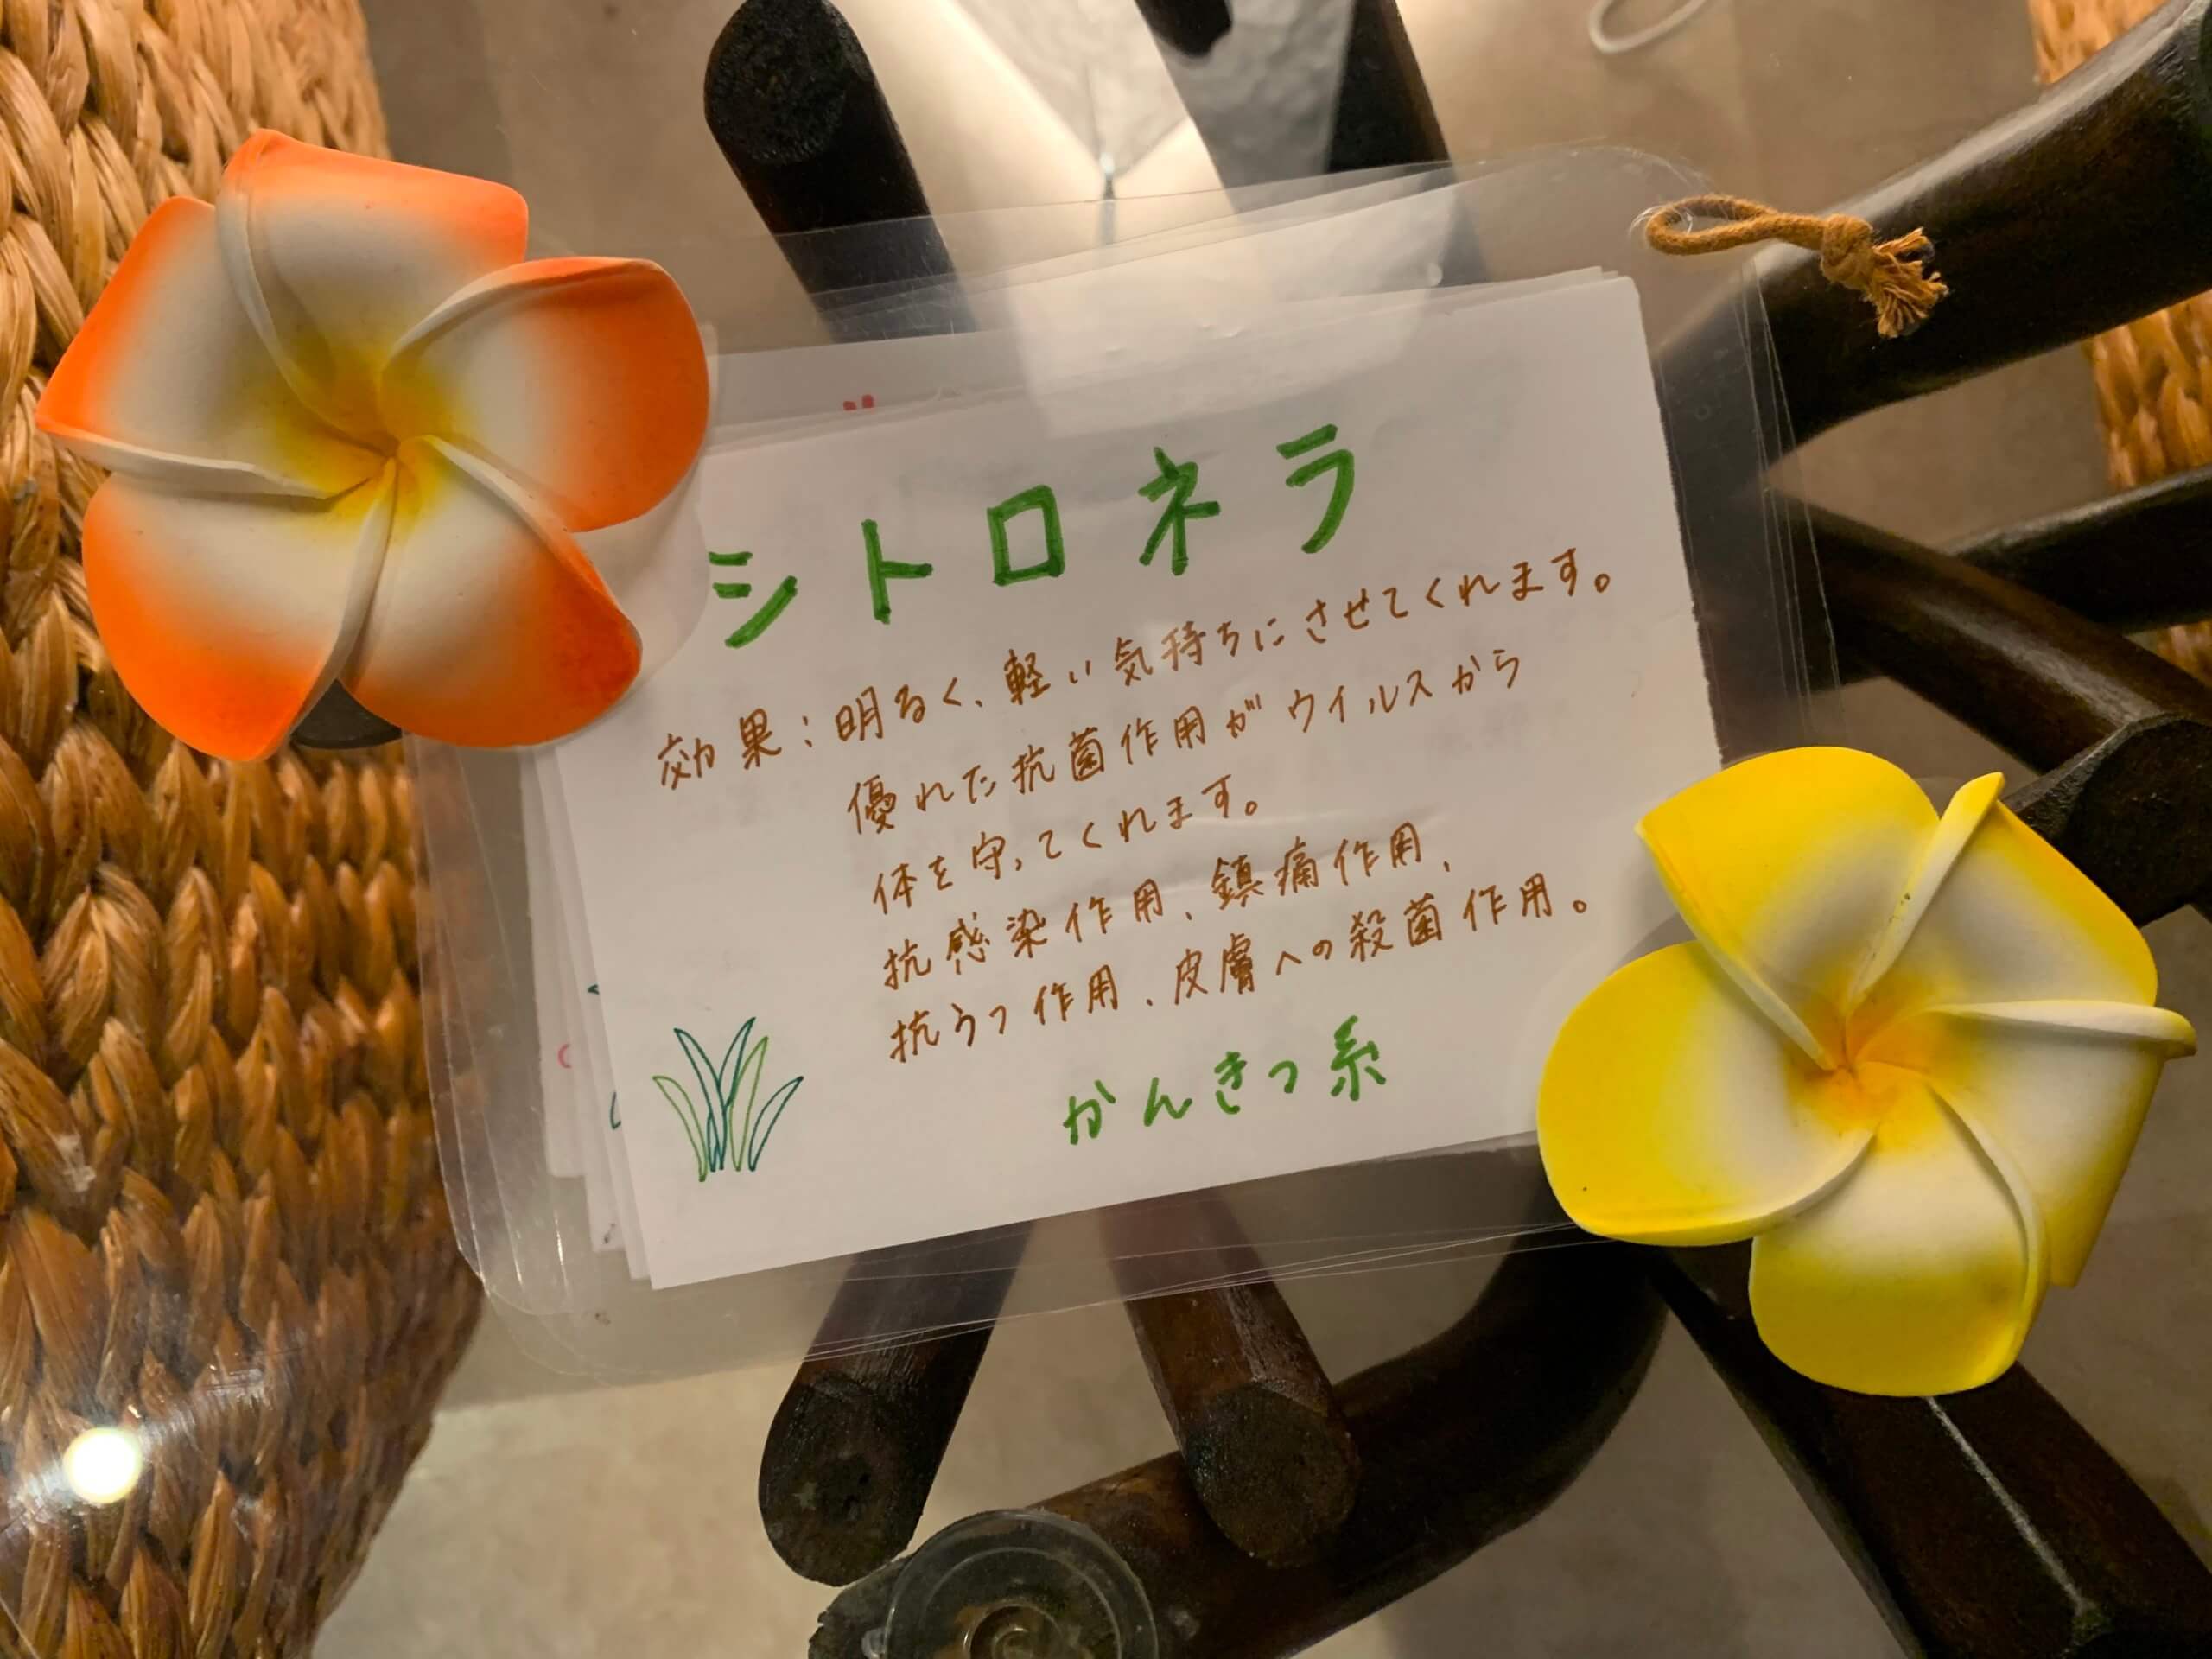 シトロネラ
効果：明るく、軽い気持ちにさせてくれます。
優れた抗菌作用がウイルスから
体を守ってくれます。
抗感染作用、鎮痛作用、
抗うつ作用、皮膚への殺菌作用。
かんきつ系